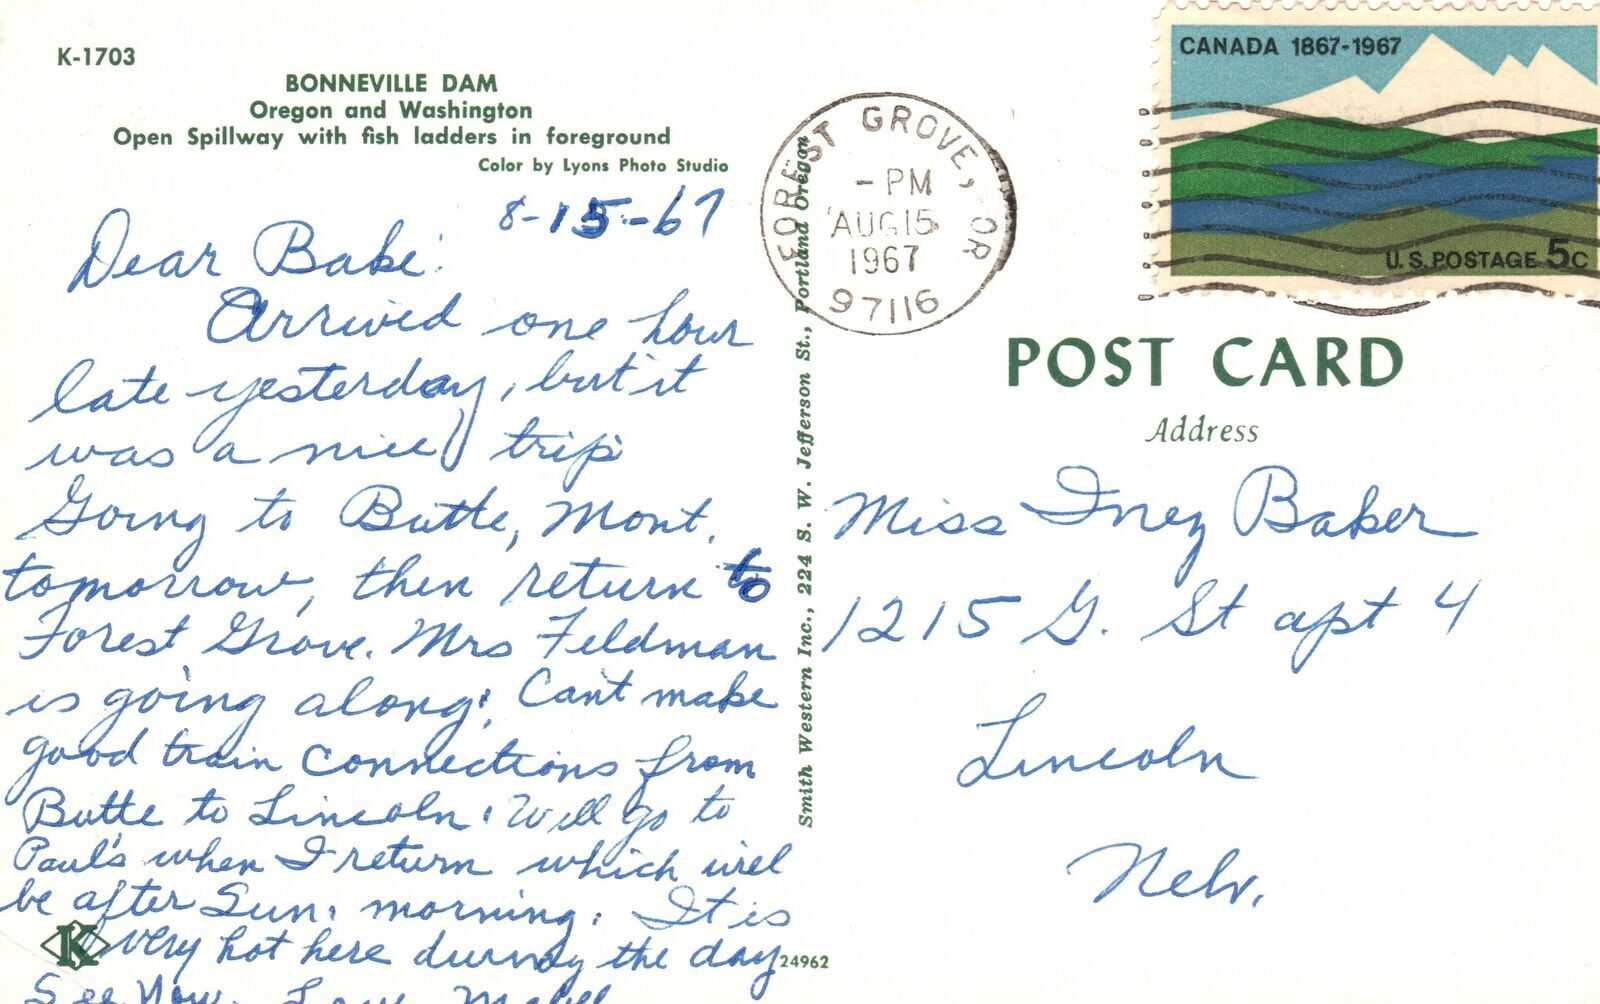 K-1703
BONNEVILLE DAM
Oregon and Washington
Open Spillway with fish ladders in foreground
Color by Lyons Photo Studio
8-15-67
Dear Bake:
Arrived one hour
late yesterday, but it
was a nice trip
Going to Butte, Mont.
tomorrow, then return to
Forest Grove. Mrs Feldman
is going along. Can't make
good train connections from
Butte to Lincoln. Will go to
Paul's when I return which will
be after Sun. morning. It is
very hot here during the day
See You. Love Mabel
K
24962
Smith Western Inc., 224 S. W. Jefferson St., Portland Oregon
FOREST GROVE, OR
- PM
AUG 15
1967
97116
CANADA 1867-1967
U.S. POSTAGE 5c
POST CARD
Address
Miss Inez Baker
1215 G. St apt 4
Lincoln
Nebr.